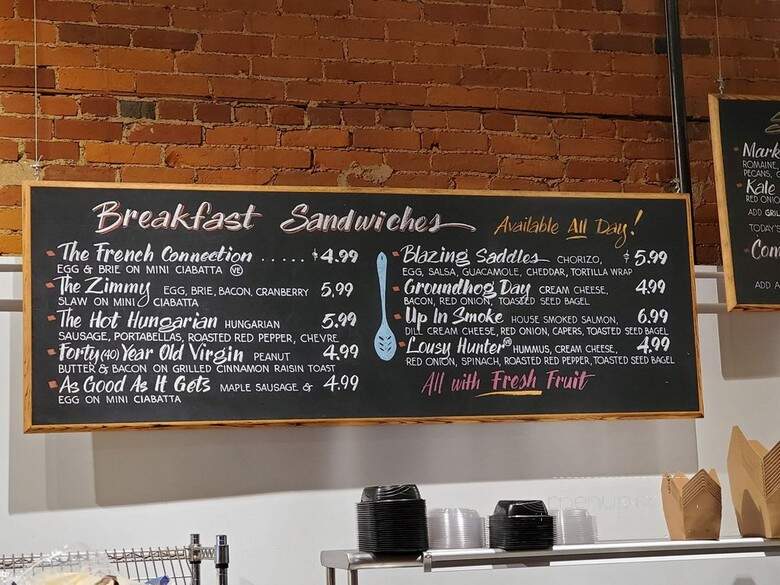 Breakfast Sandwiches Available All Day!
The French Connection ..... $4.99
EGG & BRIE ON MINI CIABATTA VE
The Zimmy EGG, BRIE, BACON, CRANBERRY 5.99
SLAW ON MINI CIABATTA
The Hot Hungarian HUNGARIAN 5.99
SAUSAGE, PORTABELLAS, ROASTED RED PEPPER, CHEVRE
Forty (40) Year Old Virgin PEANUT 4.99
BUTTER & BACON ON GRILLED CINNAMON RAISIN TOAST
As Good As It Gets MAPLE SAUSAGE & 4.99
EGG ON MINI CIABATTA
Blazing Saddles CHORIZO, $5.99
EGG, SALSA, GUACAMOLE, CHEDDAR, TORTILLA WRAP
Groundhog Day CREAM CHEESE, 4.99
BACON, RED ONION, TOASTED SEED BAGEL
Up In Smoke HOUSE SMOKED SALMON, 6.99
DILL CREAM CHEESE, RED ONION, CAPERS, TOASTED SEED BAGEL
Lousy Hunter VE HUMMUS, CREAM CHEESE, 4.99
RED ONION, SPINACH, ROASTED RED PEPPER, TOASTED SEED BAGEL
All with Fresh Fruit
Mark
ROMAINE,
PECANS,
Kale
RED ONIO
ADD
TODAY'S
Com
ADD A